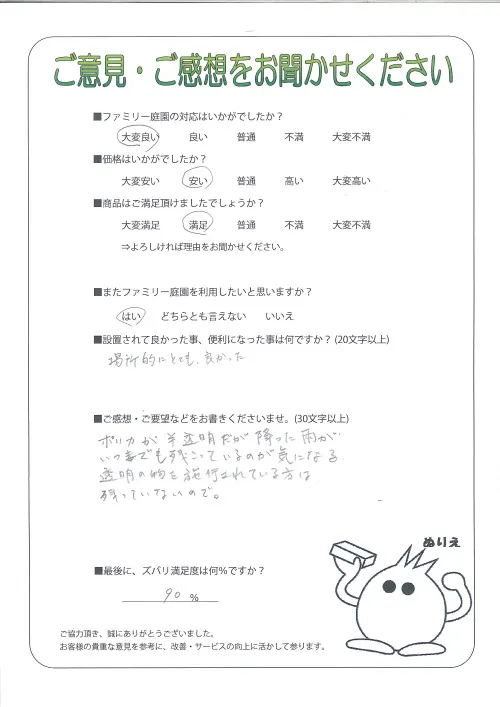 ご意見・ご感想をお聞かせください
■ファミリー庭園の対応はいかがでしたか？
大変良い 良い 普通 不満 大変不満
■価格はいかがでしたか？
大変安い 安い 普通 高い 大変高い
■商品はご満足頂けましたでしょうか？
大変満足 満足 普通 不満 大変不満
⇒よろしければ理由をお聞かせください。
■またファミリー庭園を利用したいと思いますか？
はい どちらとも言えない いいえ
■設置されて良かった事、便利になった事は何ですか？(20文字以上)
場所的にとても、良かった
■ご感想・ご要望などをお書きくださいませ。(30文字以上)
ポリカが半透明だが降った雨が
いつまでも残こっているのが気になる
透明の物を施行されている方は
残っていないので。
ぬりえ
■最後に、ズバリ満足度は何％ですか？
90 %
ご協力頂き、誠にありがとうございました。
お客様の貴重な意見を参考に、改善・サービスの向上に活かして参ります。